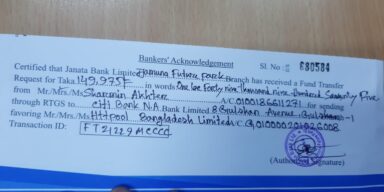 Bankers' Acknowledgement
Sl. No : 680584
Certified that Janata Bank Limited Jamuna Future Park Branch has received a Fund Transfer
Request for Taka. 149,975/- in words One lac forty nine thousand nine hundred Seventy Five
from Mr./Mrs./Ms. Sharmin Akhter A/C. 0100186611271 for sending
through RTGS to Citi Bank N.A Bank Limited 8 Gulshan Avenue Gulshan-1
favoring Mr./Mrs./Ms. Httpool Bangladesh Limited
Transaction ID:
(Authorised Signature)